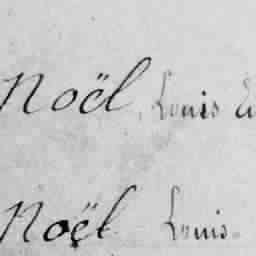 Noël, Louis
Noël Louis